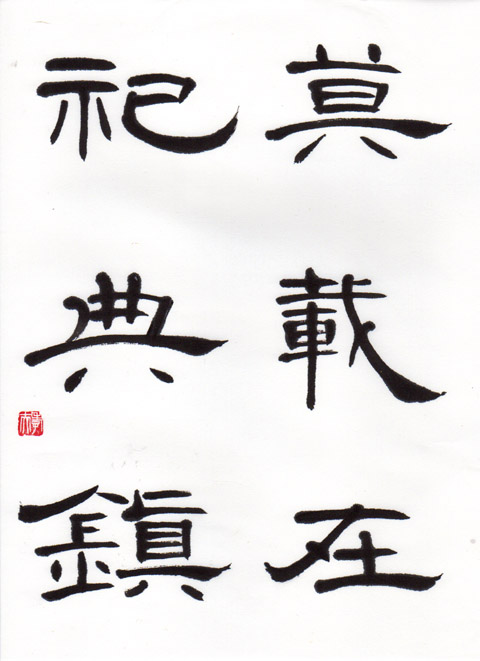 奠載在
祀典鎮